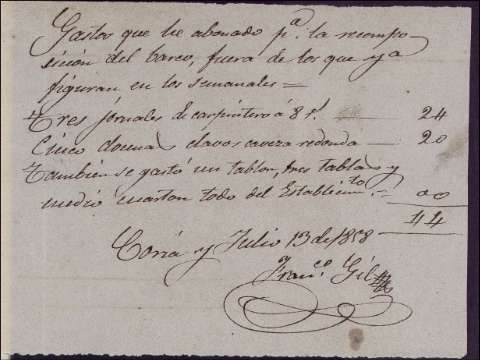 Gastos que he abonado pª. la recompo-
sición del barco, fuera de los que ya
figuran en los semanales =
Tres jornales de carpintero á 8 rˢ. 24
Cinco docenas clavos caveza redonda — 20
Tambien se gastó un tablon, tres tablas y
medio cuarton todo del Establecimᵗᵒ. = 00
44
Coria y Julio 13 de 1858
Franᶜᵒ Gil